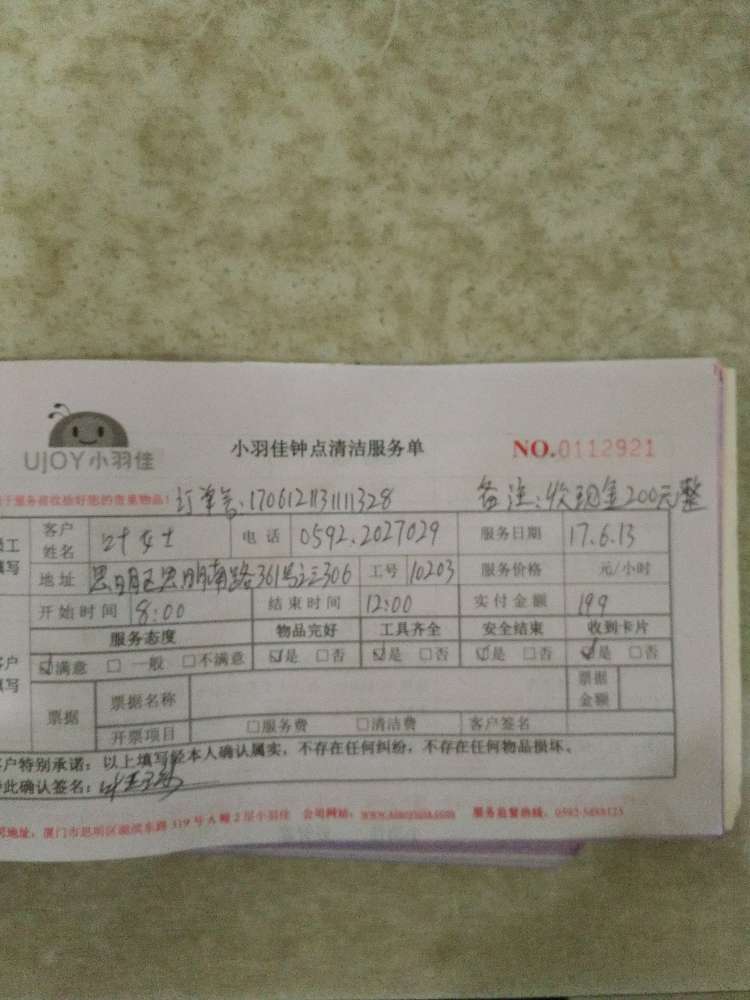 UJOY小羽佳
小羽佳钟点清洁服务单 NO.0112921
订单号:1706121131111328 备注:收现金200元整
客户姓名 叶女士 电话 0592.2027029 服务日期 17.6.13
地址 思明区思明南路361号之三306 工号 10203 服务价格 元/小时
开始时间 8:00 结束时间 12:00 实付金额 199
服务态度 物品完好 工具齐全 安全结束 收到卡片
☑满意 □一般 □不满意 ☑是 □否 ☑是 □否 ☑是 □否 ☑是 □否
票据 票据名称 票据金额
开票项目 □服务费 □清洁费 客户签名
客户特别承诺:以上填写经本人确认属实,不存在任何纠纷,不存在任何物品损坏。
此确认签名:
地址:厦门市思明区湖滨东路319号A幢2层小羽佳 公司网站: 服务监督热线: